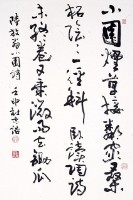 小園煙草接鄰家桑
柘陰陰一徑斜臥讀陶詩
未終卷又乘微雨去鋤瓜
陸放翁小園詩 壬申